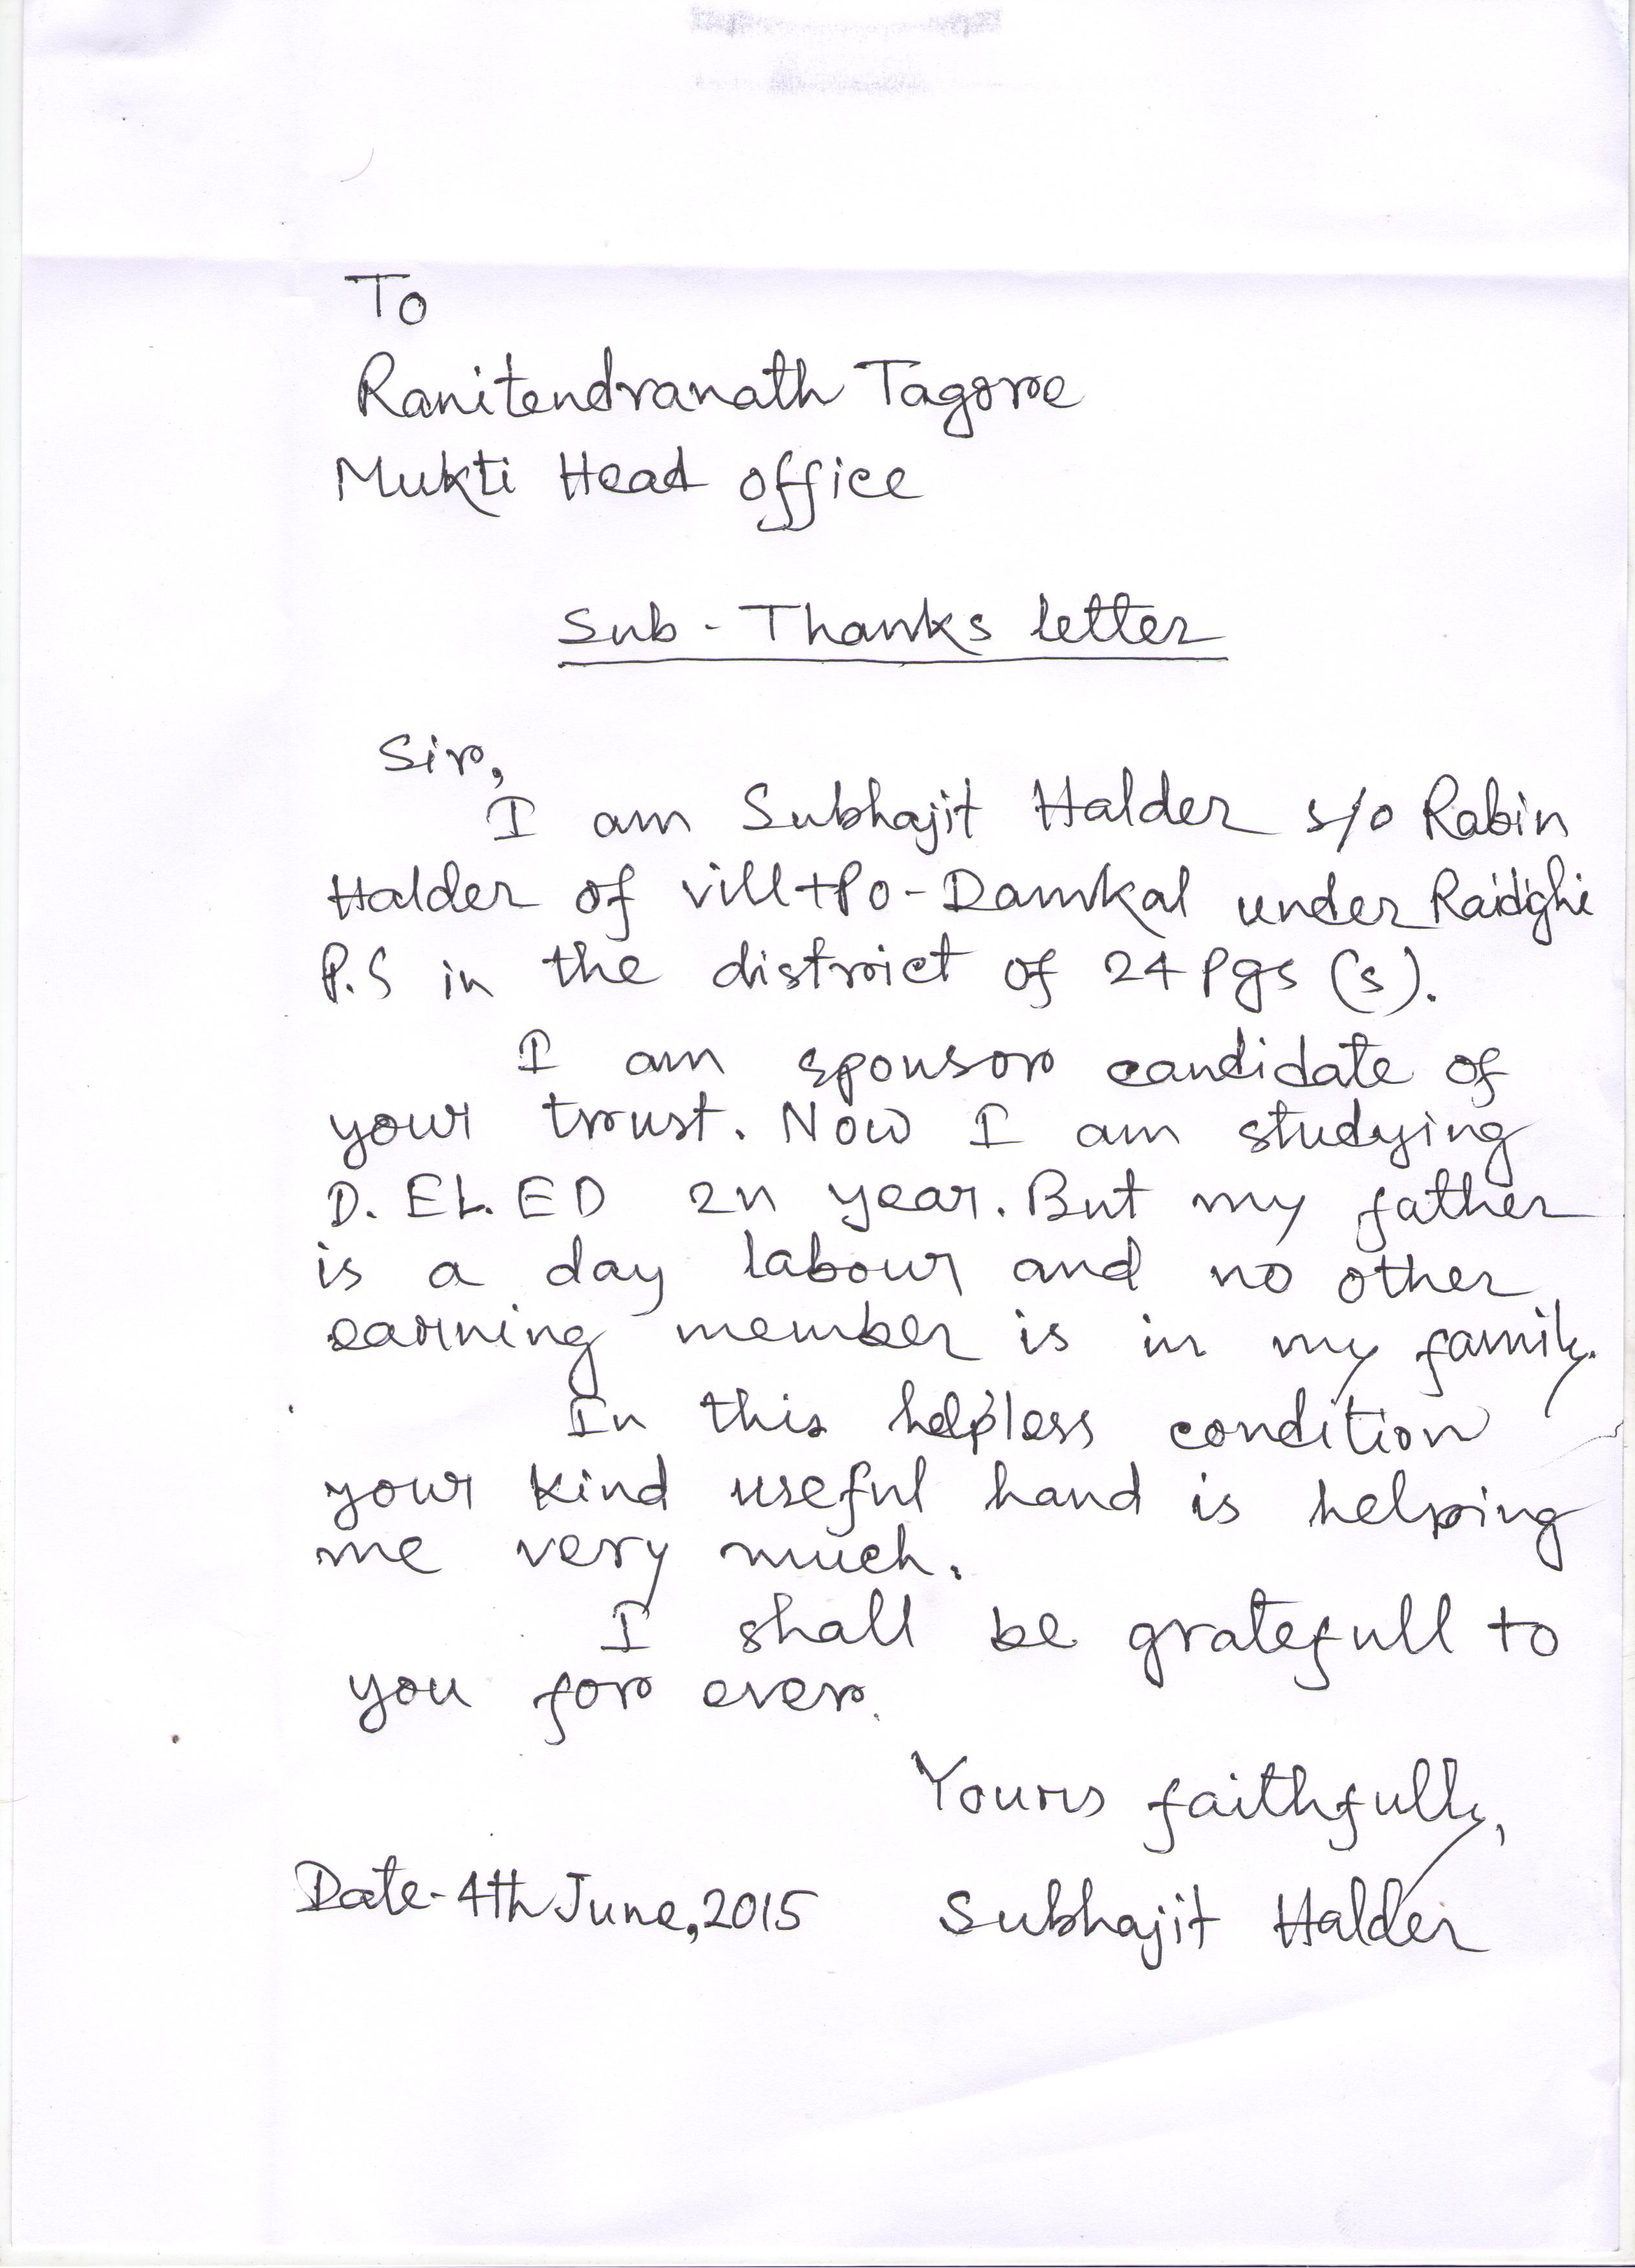 To
Ranitendranath Tagore
Mukti Head office
Sub - Thanks letter
Sir,
I am Subhajit Halder s/o Rabin
Halder of vill+Po-Damkal under Raidighi
P.S in the district of 24 Pgs (s).
I am sponsor candidate of
your trust. Now I am studying
D. EL. ED 2n year. But my father
is a day labour and no other
earning member is in my family.
In this helpless condition
your kind useful hand is helping
me very much.
I shall be gratefull to
you for ever.
Yours faithfully,
Date-4th June, 2015 Subhajit Halder